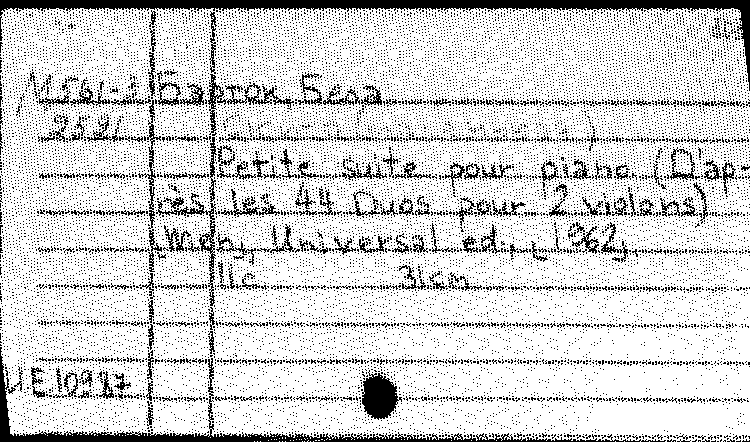 М561-3 Барток, Бела
2521
Petite suite pour piano (D'ap-
rès les 44 Duos pour 2 violons)
Wien, Universal ed., [1962].
11c 31cm
UE 10987